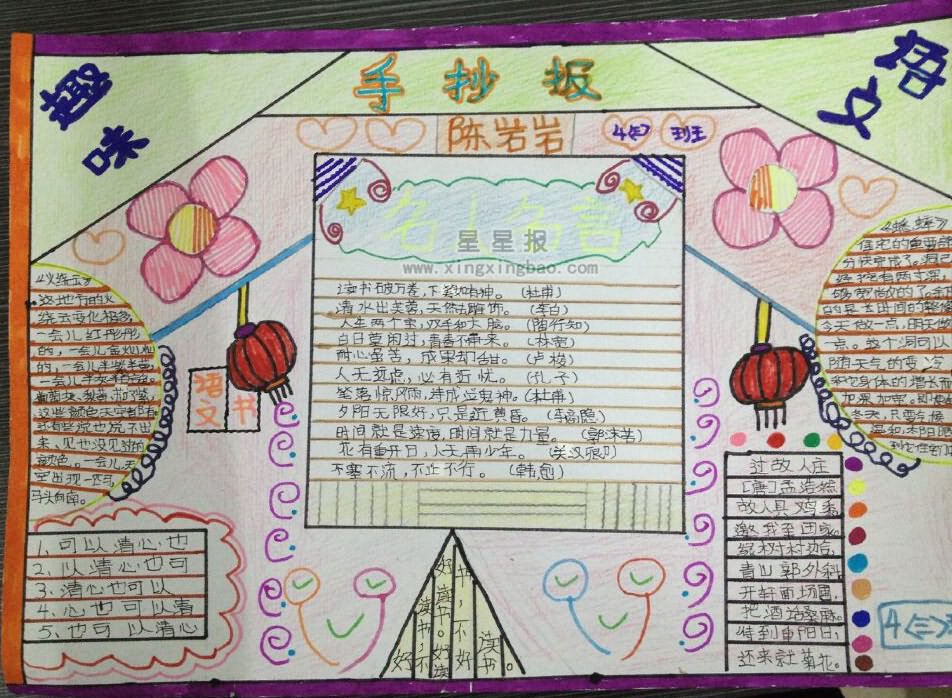 趣味
手抄报
语文
陈岩岩
4(3)班
名人名言
星星报
www.xingxingbao.com
读书破万卷，下笔如有神。(杜甫)
清水出芙蓉，天然去雕饰。(李白)
人生两个宝，双手和大脑。(陶行知)
白日莫闲过，青春不再来。(林宽)
耐心是苦，成果却甜。(卢梭)
人无远虑，必有近忧。(孔子)
笔落惊风雨，诗成泣鬼神。(杜甫)
夕阳无限好，只是近黄昏。(李商隐)
时间就是速度，时间就是力量。(郭沫若)
花有重开日，人无再少年。(关汉卿)
不塞不流，不止不行。(韩愈)
《火烧云》
这地方的火
烧云变化极多，
一会儿红彤彤
的，一会儿金灿灿
这些颜色天空都有
还有些说也说不出
来，见也没见过的
颜色。一会儿，天
空出现一匹马，
马头向南。
语文书
《蟋蟀》
住宅的重要部
分快完成了。洞已
经挖有两寸深，
够宽敞的了。余下
今天做一点，明天做
一点。这个洞可以
随天气的变冷
和它身体的增长
加深加宽。即使
冬天，只要气候
温和，太阳晒
1、可以清心也
2、以清心也可
3、清心也可以
4、心也可以清
5、也可以清心
好读书，不好读书。
好读书，不好读书。
过故人庄
[唐]孟浩然
故人具鸡黍，
邀我至田家。
绿树村边合，
青山郭外斜。
开轩面场圃，
把酒话桑麻。
待到重阳日，
还来就菊花。